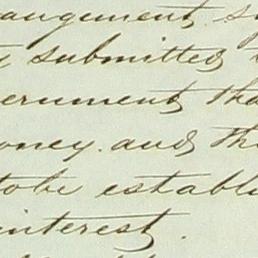 angement
submitted
ernment tha
oney. and th
to be establ
interest.